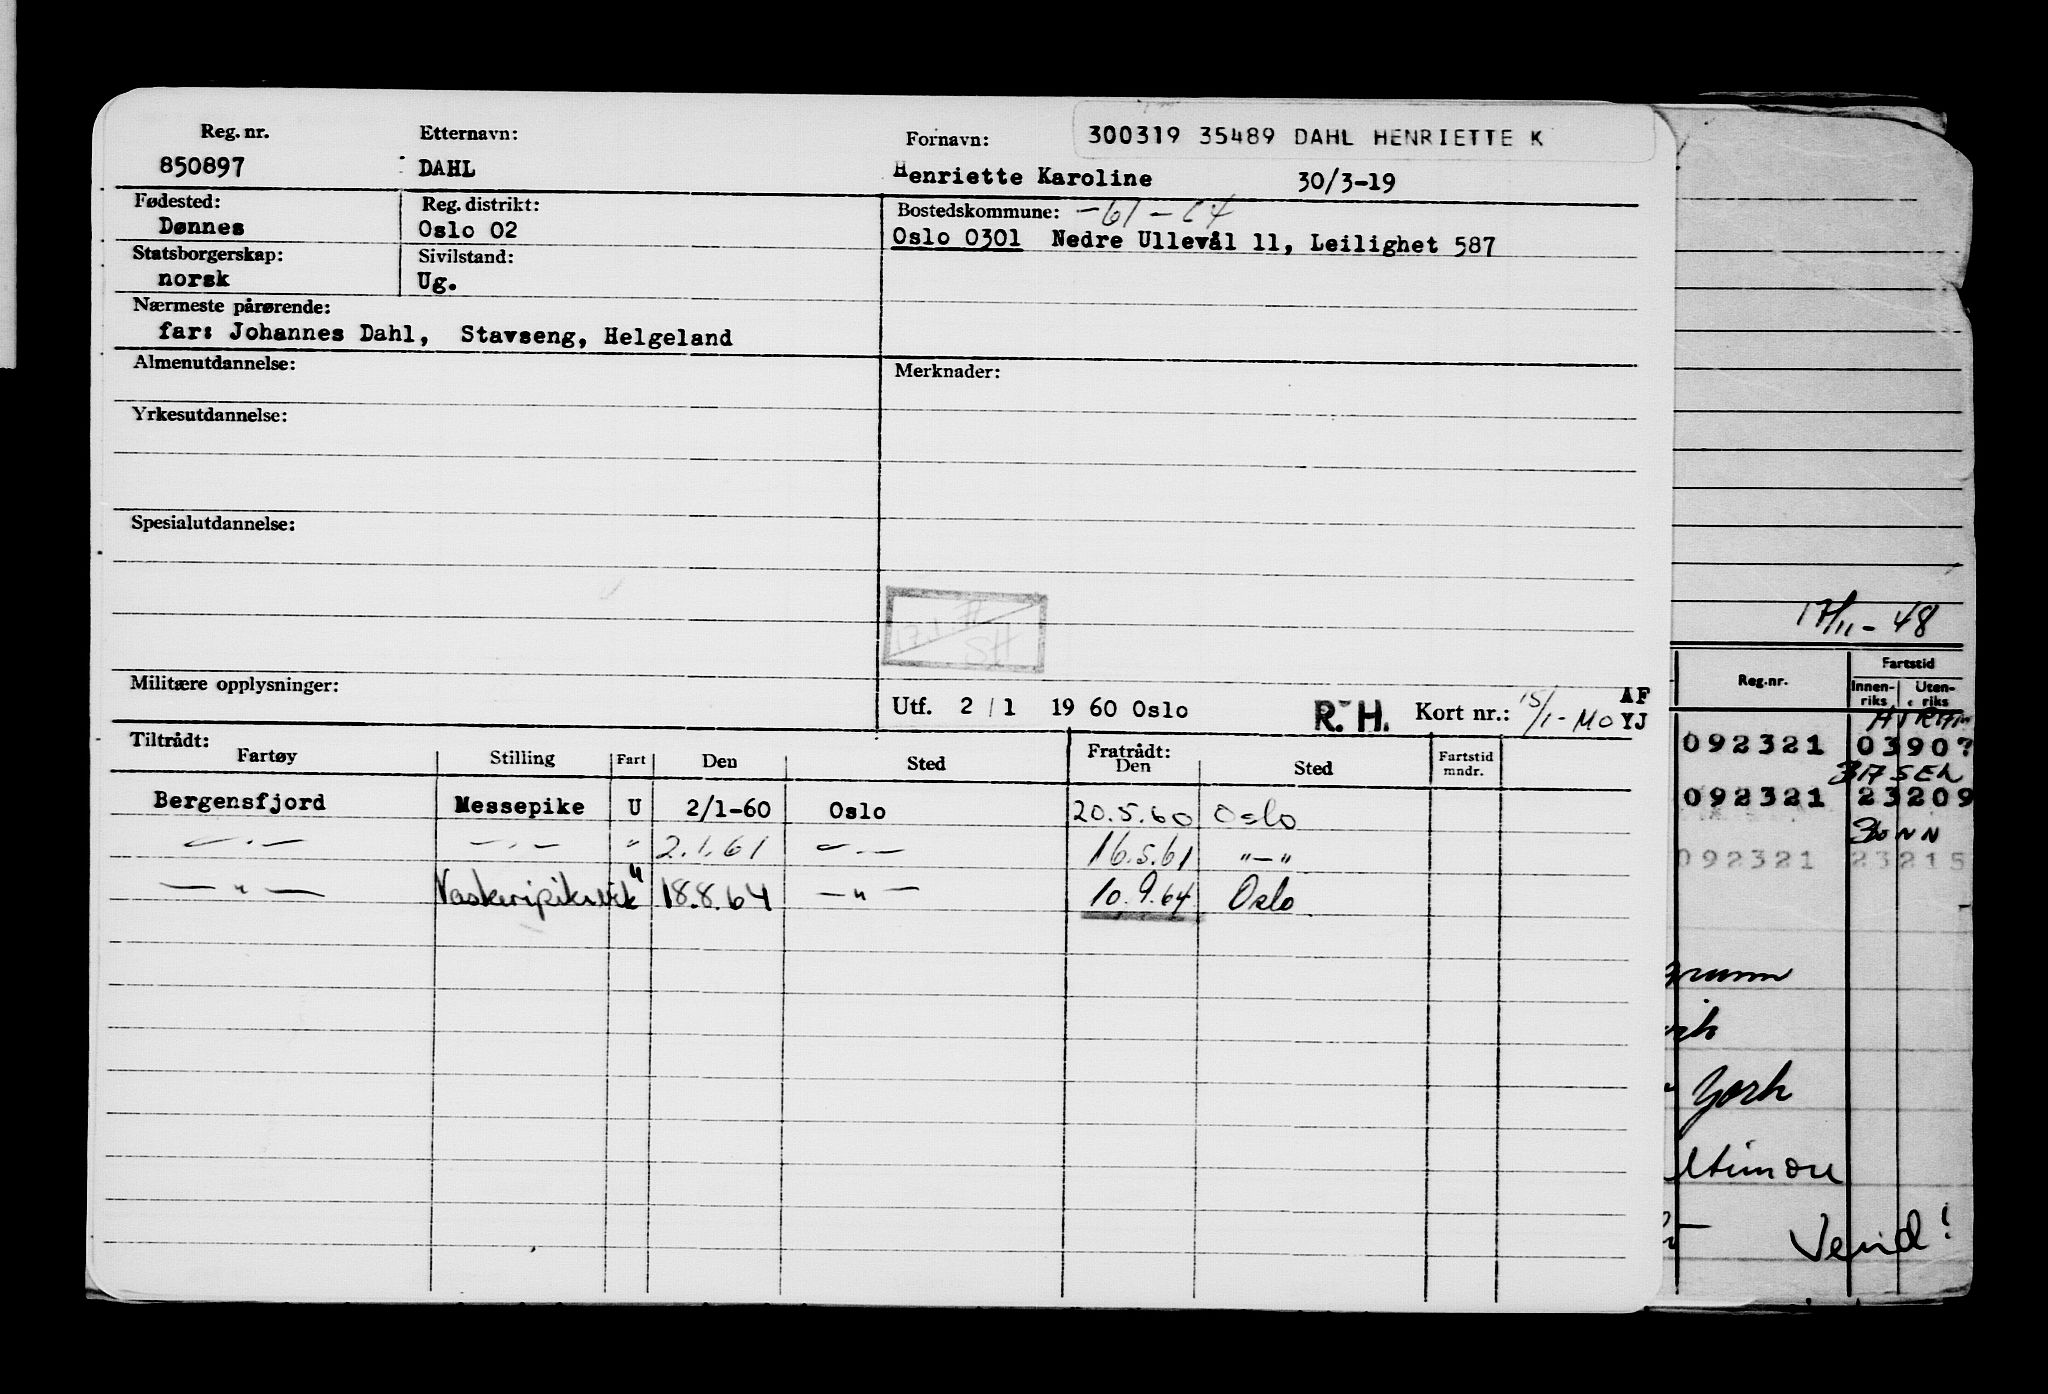 300319 35489 DAHL HENRIETTE K
Reg. nr. Etternavn: Fornavn:
850897 DAHL Henriette Karoline 30/3-19
Fødested: Reg. distrikt: Bostedskommune: -61-64
Dønnes Oslo 02 Oslo 0301 Nedre Ullevål 11, Leilighet 587
Statsborgerskap: Sivilstand:
norsk Ug.
Nærmeste pårørende:
far: Johannes Dahl, Stavseng, Helgeland
Almenutdannelse: Merknader:
Yrkesutdannelse:
Spesialutdannelse:
SH
Militære opplysninger:
Utf. 2/1 19 60 Oslo R. H. Kort nr.: 15/1-MO AF YJ
Tiltrådt: Fratrådt:
Fartøy Stilling Fart Den Sted Den Sted Fartstid mndr.
Bergensfjord Messepike U 2/1-60 Oslo 20.5.60 Oslo
— . — — . — " 2.1.61 — . — 16.5.61 "—"
— " — " 18.8.64 — " — 10.9.64 Oslo
17/11-48
Reg.nr. Fartstid
Innenriks Utenriks
092321 0390?
092321 23209
092321 23215
York
Vend!